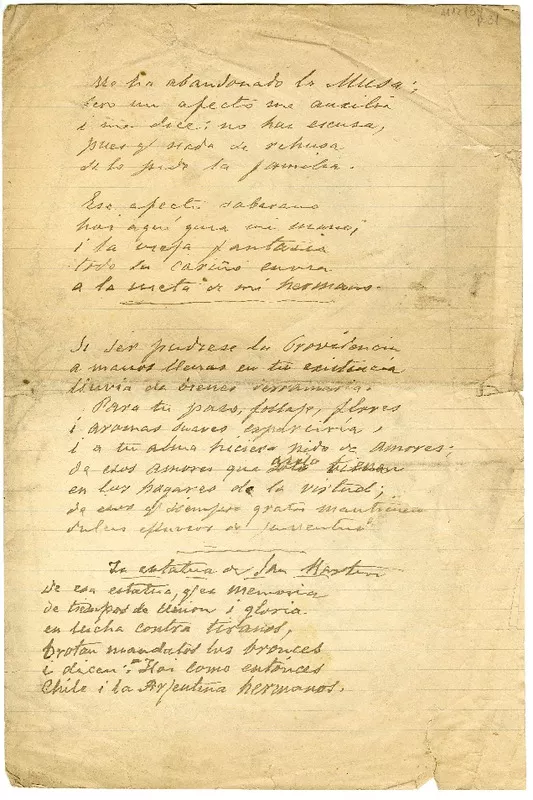 Me ha abandonado la Musa;
Pero un afecto me auxilia
i me dice: no hai escusa,
pues qe nada se rehusa
de lo pide la familia.
Ese afecto soberano
hoi aquí guia mi mano;
i la vieja fantasia
todo su cariño envia
a la nieta de mi hermano.
Si ser pudiese la Providencia
a manos llenas en tu existencia
lluvia de bienes derramaria.
Para tu paso, follaje, flores
i aromas suaves esparciria,
i a tu alma hiciera nido de amores;
de esos amores que
en los hogares de la virtud;
de esos qe siempre gratos mantienen
dulces de juventud
La estatua de San Martin
De esa estatua, qe es memoria
de tiempos de union i gloria
en lucha contra tiranos,
brotan mandatos los bronces
i dicen: "Hoi como entónces
Chile i la Arjentina hermanos.